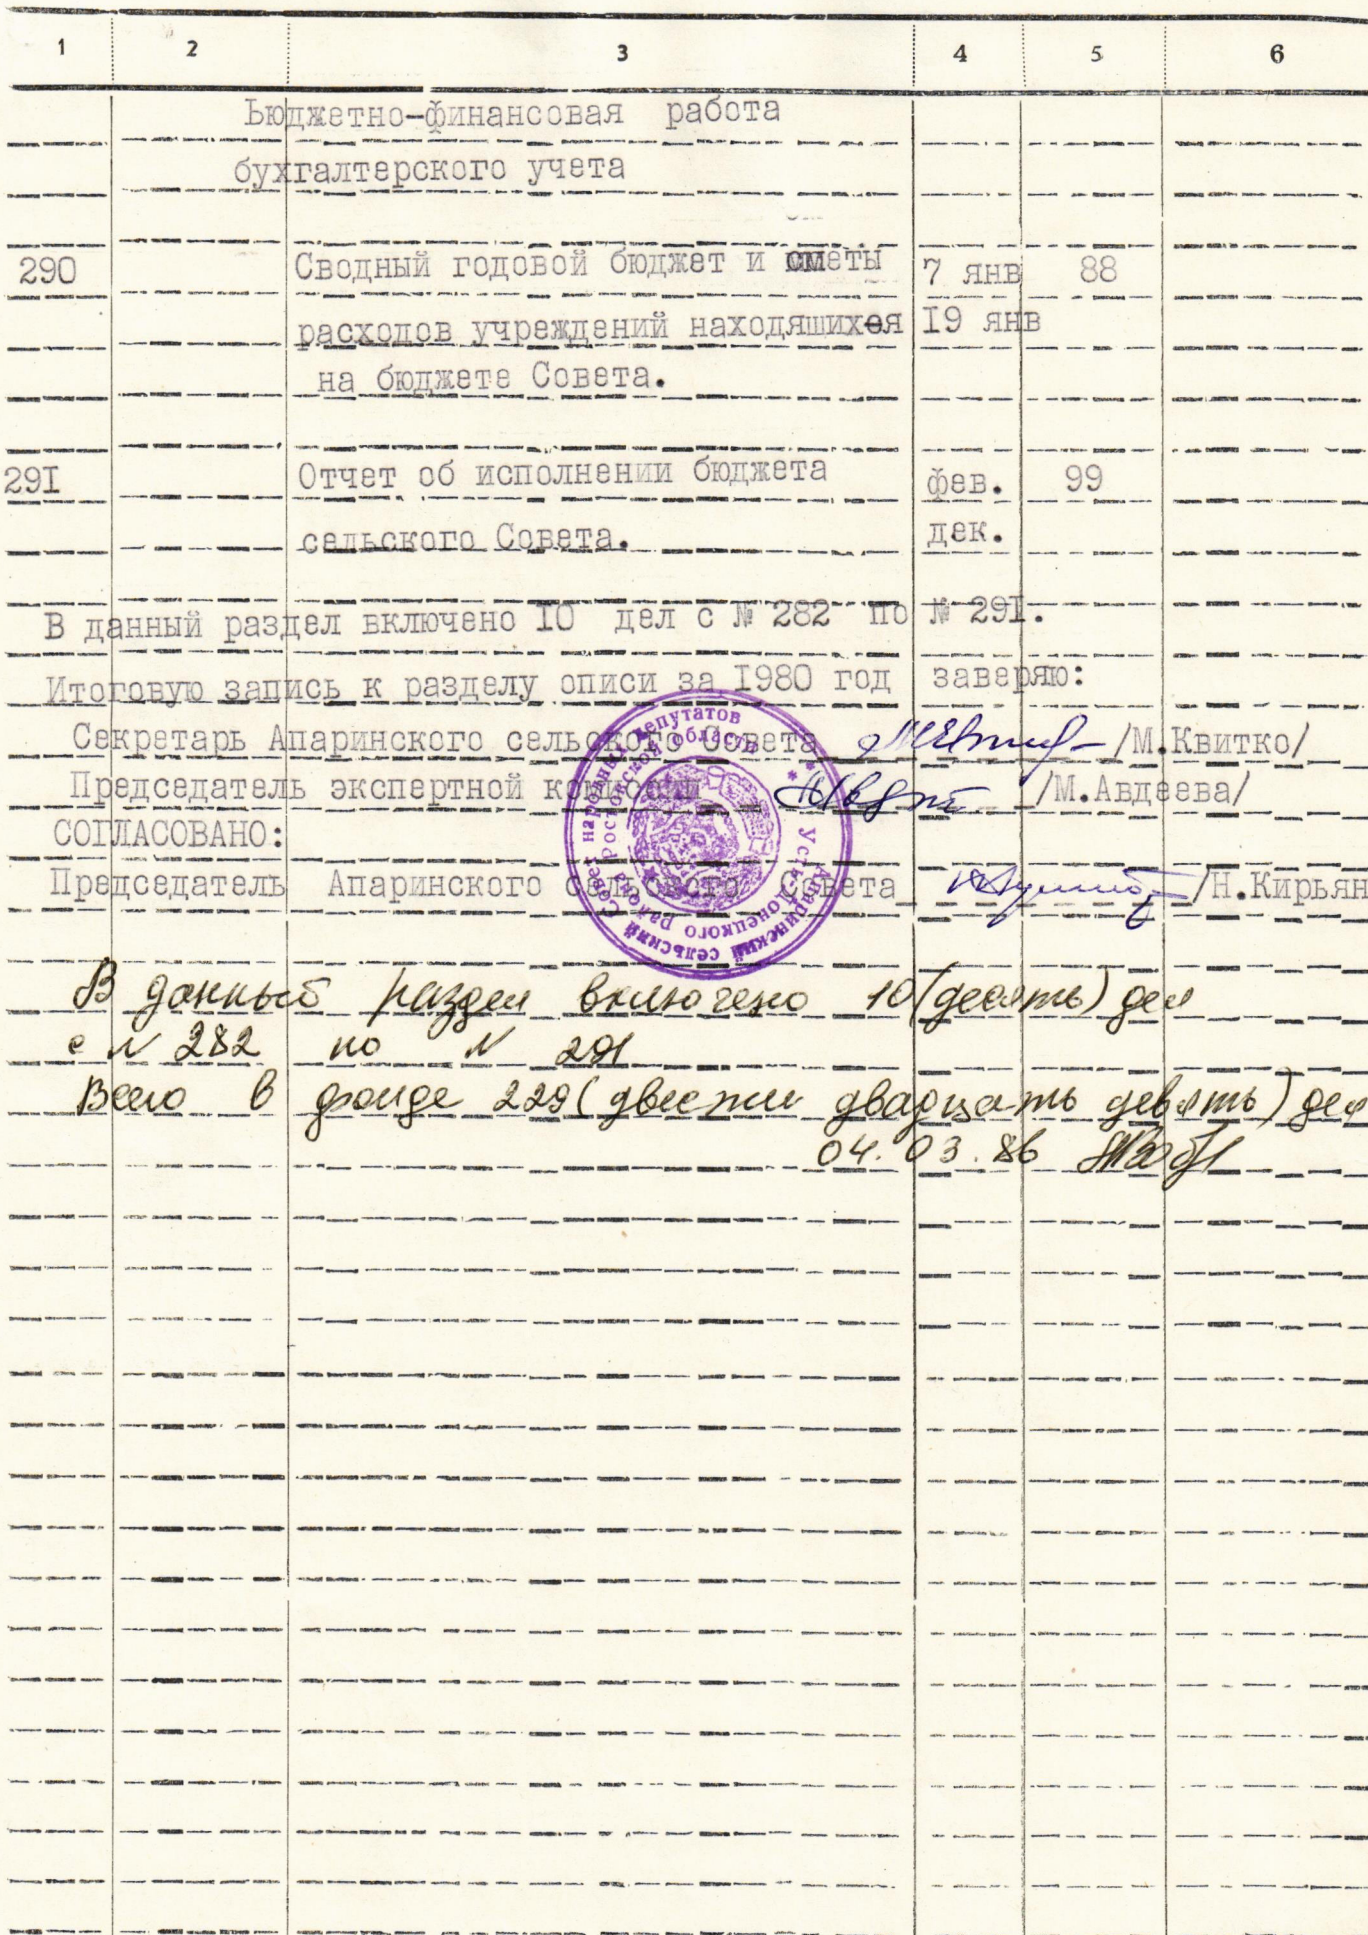 1 2 3 4 5 6
Бюджетно-финансовая работа
бухгалтерского учета
290 Сводный годовой бюджет и сметы 7 янв 88
расходов учреждений находящихся 19 янв
на бюджете Совета.
291 Отчет об исполнении бюджета фев. 99
сельского Совета. дек.
В данный раздел включено 10 дел с № 282 по № 291.
Итоговую запись к разделу описи за 1980 год заверяю:
Секретарь Апаринского сельского Совета /М.Квитко/
Председатель экспертной комиссии /М.Авдеева/
СОГЛАСОВАНО:
Председатель Апаринского сельского Совета /Н.Кирьян
Апаринский сельский Совет народных депутатов
Усть-Донецкого района Ростовской области
В данный раздел включено 10 (десять) дел
с N 282 по N 291
Всего в фонде 229 (двести двадцать девять) дел
04.03.86